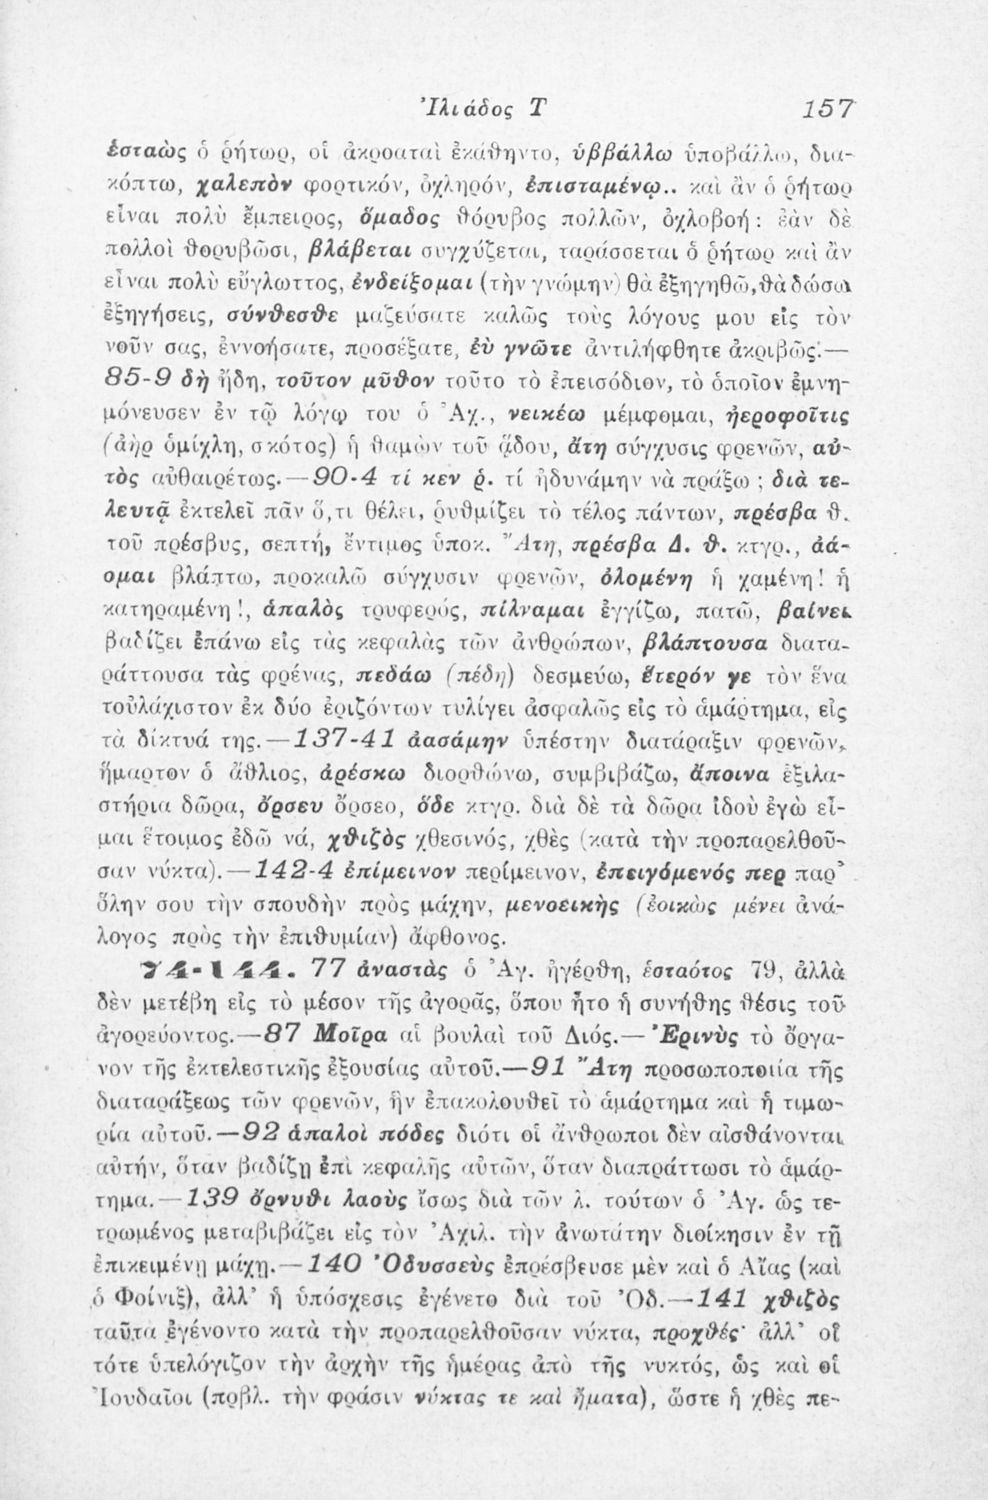 Ἰλιάδος Τ 157
ἑσταὼς ὁ ῥήτωρ, οἱ ἀκροαταὶ ἐκάθηντο, ὑββάλλω ὑποβάλλω, δια-
κόπτω, χαλεπὸν φορτικόν, ὀχληρόν, ἐπισταμένῳ.. καὶ ἂν ὁ ῥήτωρ
εἶναι πολὺ ἔμπειρος, ὅμαδος θόρυβος πολλῶν, ὀχλοβοή: ἐὰν δὲ
πολλοὶ θορυβῶσι, βλάβεται συγχύζεται, ταράσσεται ὁ ῥήτωρ καὶ ἂν
εἶναι πολὺ εὔγλωττος, ἐνδείξομαι (τὴν γνώμην) θὰ ἐξηγηθῶ, θὰ δώσω
ἐξηγήσεις, σύνθεσθε μαζεύσατε καλῶς τοὺς λόγους μου εἰς τὸν
νοῦν σας, ἐννοήσατε, προσέξατε, ἐὺ γνῶτε ἀντιλήφθητε ἀκριβῶς.—
85-9 δὴ ἤδη, τοῦτον μῦθον τοῦτο τὸ ἐπεισόδιον, τὸ ὁποῖον ἐμνη-
μόνευσεν ἐν τῷ λόγῳ του ὁ Ἀχ., νεικέω μέμφομαι, ἠεροφοῖτις
(ἀὴρ ὁμίχλη, σκότος) ἡ θαμὼν τοῦ ᾅδου, ἄτη σύγχυσις φρενῶν, αὐ-
τὸς αὐθαιρέτως.—90-4 τί κεν ῥ. τί ἠδυνάμην νὰ πράξω ; διὰ τε-
λευτᾷ ἐκτελεῖ πᾶν ὅ,τι θέλει, ῥυθμίζει τὸ τέλος πάντων, πρέσβα θ.
τοῦ πρέσβυς, σεπτή, ἔντιμος ὑποκ. Ἄτη, πρέσβα Δ. θ. κτγρ., ἀά-
ομαι βλάπτω, προκαλῶ σύγχυσιν φρενῶν, ὀλομένη ἡ χαμένη! ἡ
κατηραμένη!, ἁπαλὸς τρυφερός, πίλναμαι ἐγγίζω, πατῶ, βαίνει
βαδίζει ἐπάνω εἰς τὰς κεφαλὰς τῶν ἀνθρώπων, βλάπτουσα διατα-
ράττουσα τὰς φρένας, πεδάω (πέδη) δεσμεύω, ἕτερόν γε τὸν ἕνα
τοὐλάχιστον ἐκ δύο ἐριζόντων τυλίγει ἀσφαλῶς εἰς τὸ ἁμάρτημα, εἰς
τὰ δίκτυά της.—137-41 ἀασάμην ὑπέστην διατάραξιν φρενῶν,
ἥμαρτον ὁ ἄθλιος, ἀρέσκω διορθώνω, συμβιβάζω, ἄποινα ἐξιλα-
στήρια δῶρα, ὄρσευ ὄρσεο, ὅδε κτγρ. διὰ δὲ τὰ δῶρα ἰδοὺ ἐγὼ εἶ-
μαι ἕτοιμος ἐδῶ νά, χθιζὸς χθεσινός, χθὲς (κατὰ τὴν προπαρελθοῦ-
σαν νύκτα).—142-4 ἐπίμεινον περίμεινον, ἐπειγόμενός περ παρ’
ὅλην σου τὴν σπουδὴν πρὸς μάχην, μενοεικὴς (ἐοικὼς μένει ἀνά-
λογος πρὸς τὴν ἐπιθυμίαν) ἄφθονος.
74-144. 77 ἀναστὰς ὁ Ἀγ. ἠγέρθη, ἑσταότος 79, ἀλλὰ
δὲν μετέβη εἰς τὸ μέσον τῆς ἀγορᾶς, ὅπου ἦτο ἡ συνήθης θέσις τοῦ
ἀγορεύοντος.—87 Μοῖρα αἱ βουλαὶ τοῦ Διός.—Ἐρινὺς τὸ ὄργα-
νον τῆς ἐκτελεστικῆς ἐξουσίας αὐτοῦ.—91 Ἄτη προσωποποιία τῆς
διαταράξεως τῶν φρενῶν, ἣν ἐπακολουθεῖ τὸ ἁμάρτημα καὶ ἡ τιμω-
ρία αὐτοῦ.—92 ἁπαλοὶ πόδες διότι οἱ ἄνθρωποι δὲν αἰσθάνονται
αὐτήν, ὅταν βαδίζῃ ἐπὶ κεφαλῆς αὐτῶν, ὅταν διαπράττωσι τὸ ἁμάρ-
τημα.—139 ὄρνυθι λαοὺς ἴσως διὰ τῶν λ. τούτων ὁ Ἀγ. ὡς τε-
τρωμένος μεταβιβάζει εἰς τὸν Ἀχιλ. τὴν ἀνωτάτην διοίκησιν ἐν τῇ
ἐπικειμένῃ μάχῃ.—140 Ὀδυσσεὺς ἐπρέσβευσε μὲν καὶ ὁ Αἴας (καὶ
ὁ Φοίνιξ), ἀλλ’ ἡ ὑπόσχεσις ἐγένετο διὰ τοῦ Ὀδ.—141 χθιζὸς
ταῦτα ἐγένοντο κατὰ τὴν προπαρελθοῦσαν νύκτα, προχθές· ἀλλ’ οἱ
τότε ὑπελόγιζον τὴν ἀρχὴν τῆς ἡμέρας ἀπὸ τῆς νυκτός, ὡς καὶ οἱ
Ἰουδαῖοι (πρβλ. τὴν φράσιν νύκτας τε καὶ ἤματα), ὥστε ἡ χθὲς πε-